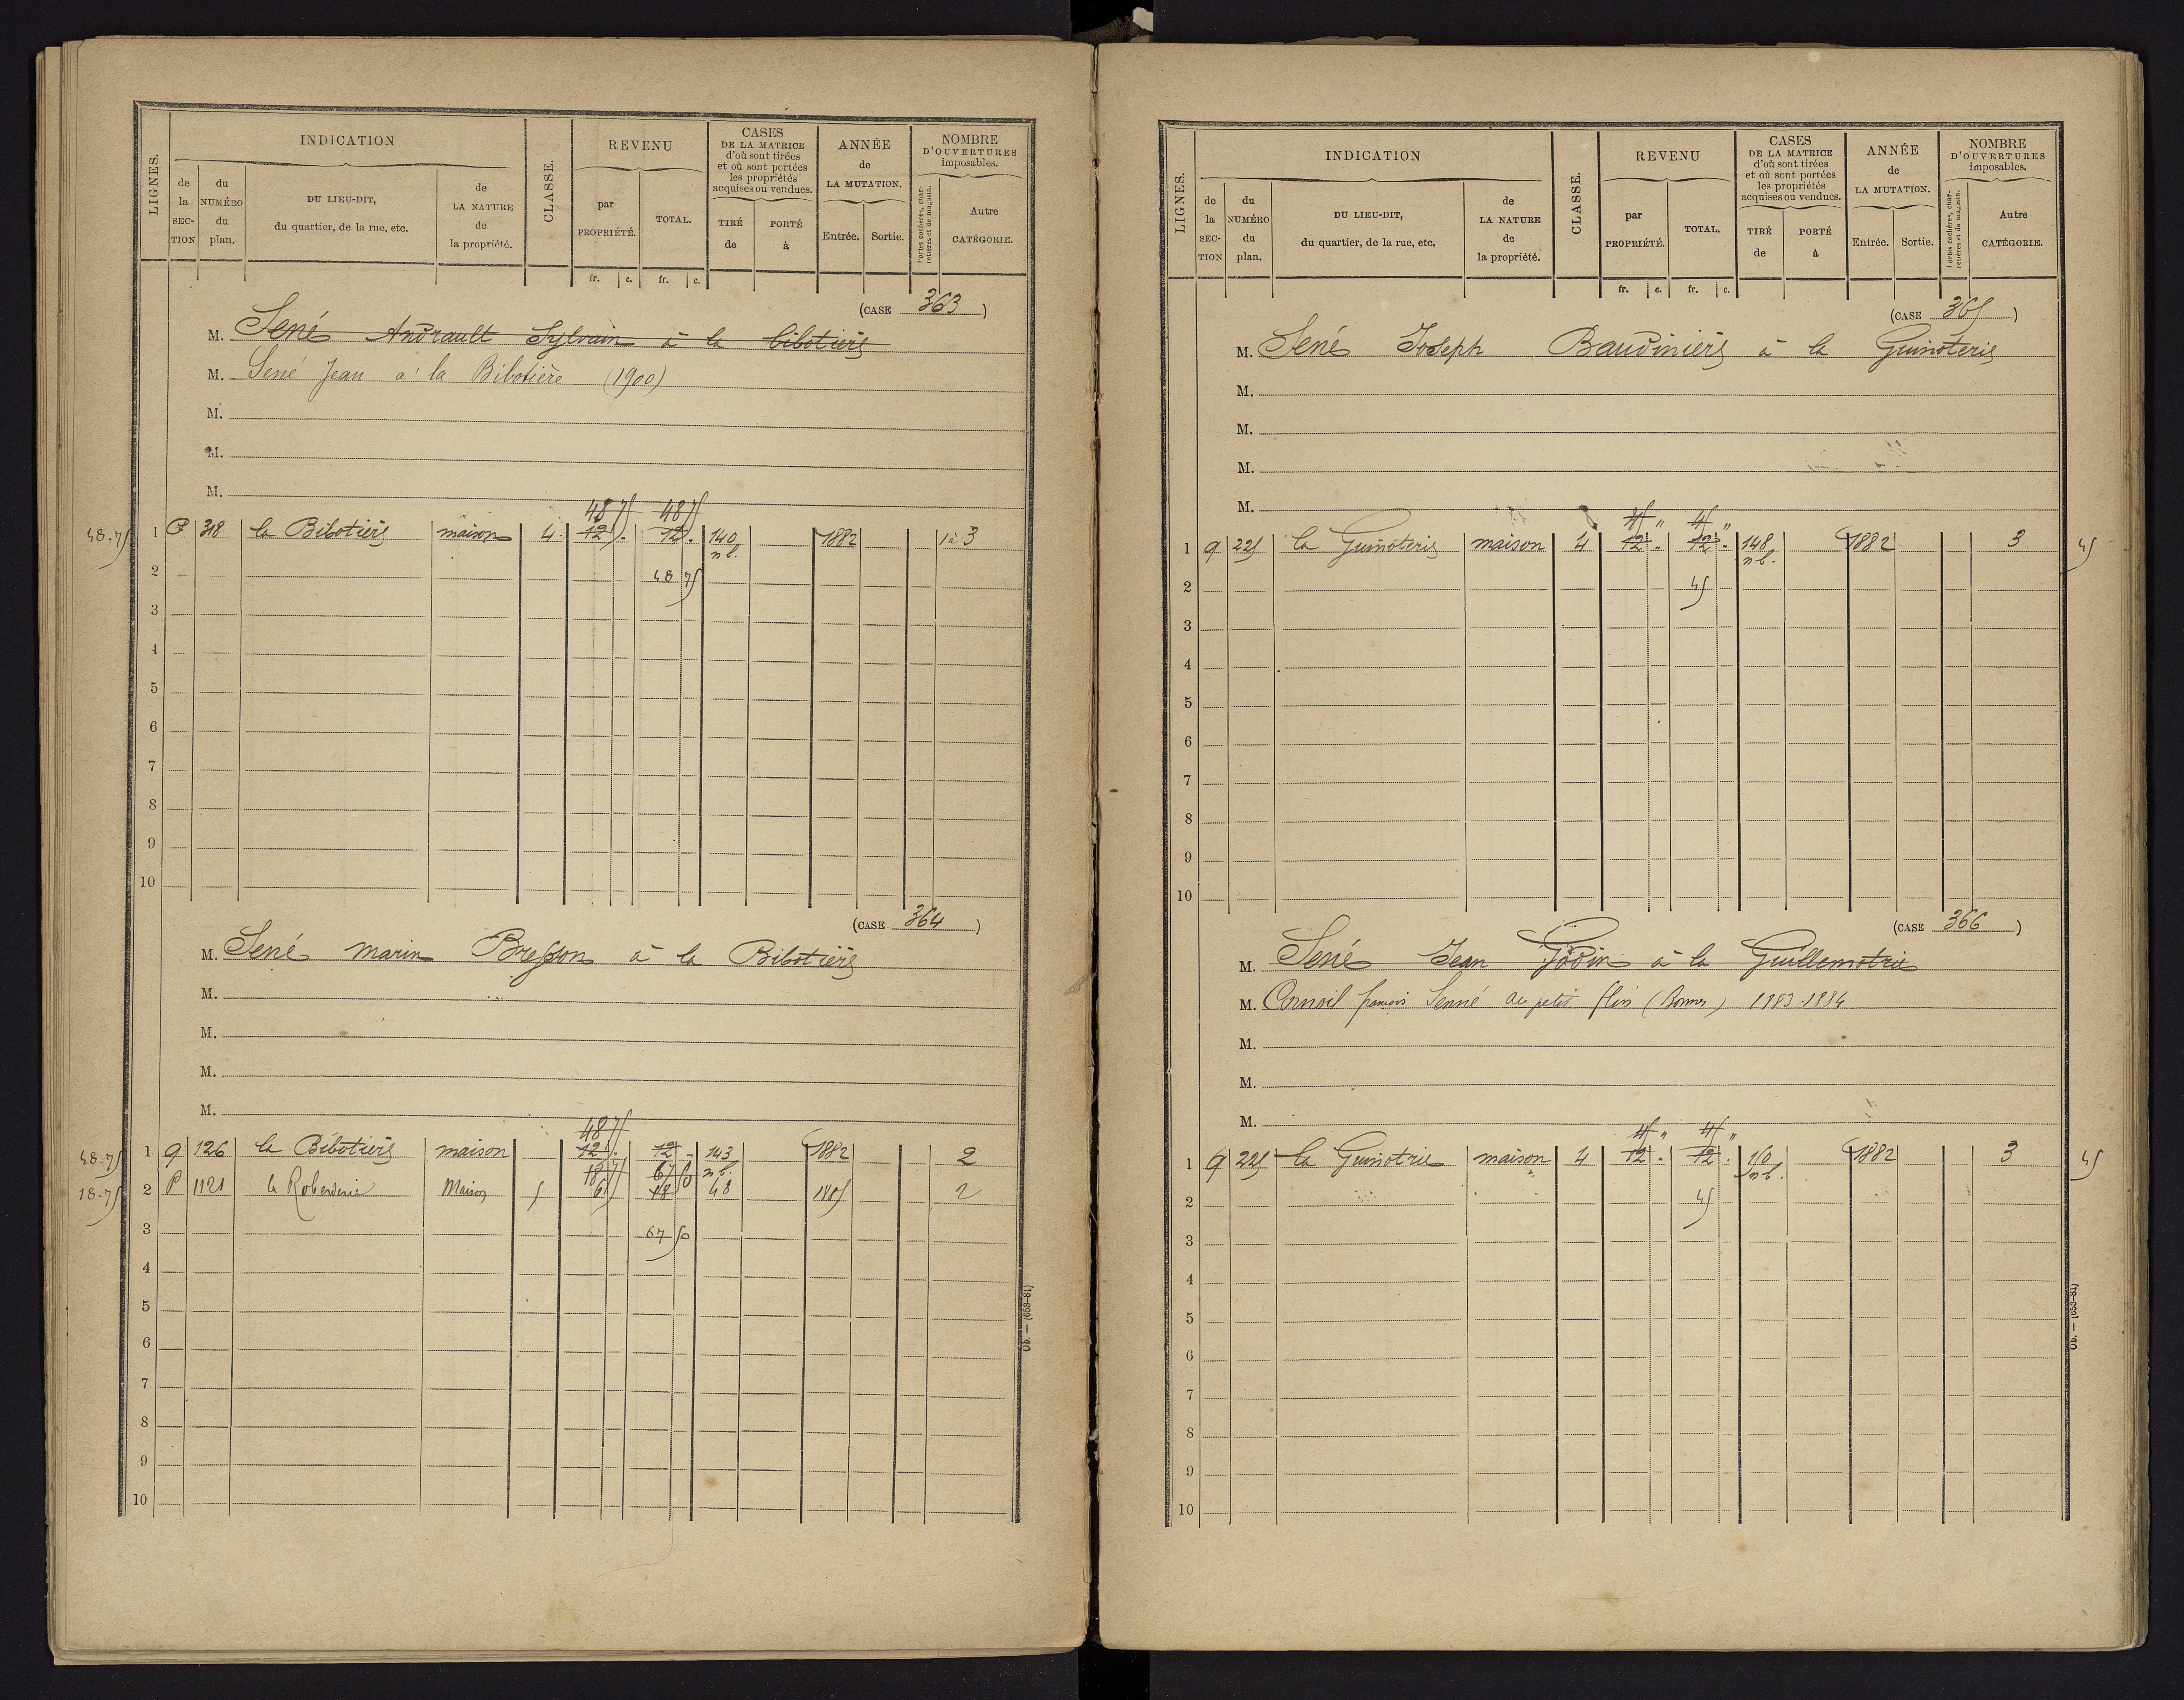 LIGNES.
INDICATION
CLASSE.
REVENU
CASES
DE LA MATRICE
d'où sont tirées
et où sont portées
les propriétés
acquises ou vendues.
ANNÉE
de
LA MUTATION.
NOMBRE
D'OUVERTURES
imposables.
de
la
SEC-
TION
du
NUMÉRO
du
plan.
DU LIEU-DIT,
du quartier, de la rue, etc.
de
LA NATURE
de
la propriété.
par
PROPRIÉTÉ.
TOTAL.
TIRÉ
de
PORTÉ
à
Entrée.
Sortie.
Portes cochères, char-
retières et de magasin.
Autre
CATÉGORIE.
fr. c. fr. c.
(CASE 363)
M. Sené Andrault Sylvain à la bibotière
M. Sené Jean à la Bibotière (1900)
M.
M.
M.
48 75 48 75
48.75 1 P 318 la Bibotière maison 4 12 . 12 . 140 1882 1 à 3
n b.
2 48 75
3
4
5
6
7
8
9
10
(CASE 364)
M. Sené marin Bresson à la Bibotière
M.
M.
M.
M.
48 75
48.75 1 q 126 la Bibotière maison 12 . 12 . 143 1882 2
18 75 67 50 n b.
18.75 2 P 1121 la Maison 5 6 18 48 1885 2
3 67 50
4
5
6
7
8
9
10
Ob. — (653-81)
LIGNES.
INDICATION
CLASSE.
REVENU
CASES
DE LA MATRICE
d'où sont tirées
et où sont portées
les propriétés
acquises ou vendues.
ANNÉE
de
LA MUTATION.
NOMBRE
D'OUVERTURES
imposables.
de
la
SEC-
TION
du
NUMÉRO
du
plan.
DU LIEU-DIT,
du quartier, de la rue, etc.
de
LA NATURE
de
la propriété.
par
PROPRIÉTÉ.
TOTAL.
TIRÉ
de
PORTÉ
à
Entrée.
Sortie.
Portes cochères, char-
retières et de magasin.
Autre
CATÉGORIE.
fr. c. fr. c.
(CASE 365)
M. Sené Joseph Baudinière à la Guinoterie
M.
M.
M.
M.
45 " 45 "
1 q 225 la Guinoterie maison 4 12 " 12 " 148 1882 3 45
n b.
2 45
3
4
5
6
7
8
9
10
(CASE 366)
M. Sené Jean Godin à la Guillemotrie
M. françois Senné au petit (Bonnes) 1883-1884
M.
M.
M.
45 " 45 "
1 q 225 la Guinotrie maison 4 12 " 12 " 150 1882 3 45
n b.
2 45
3
4
5
6
7
8
9
10
Ob. — (653-81)